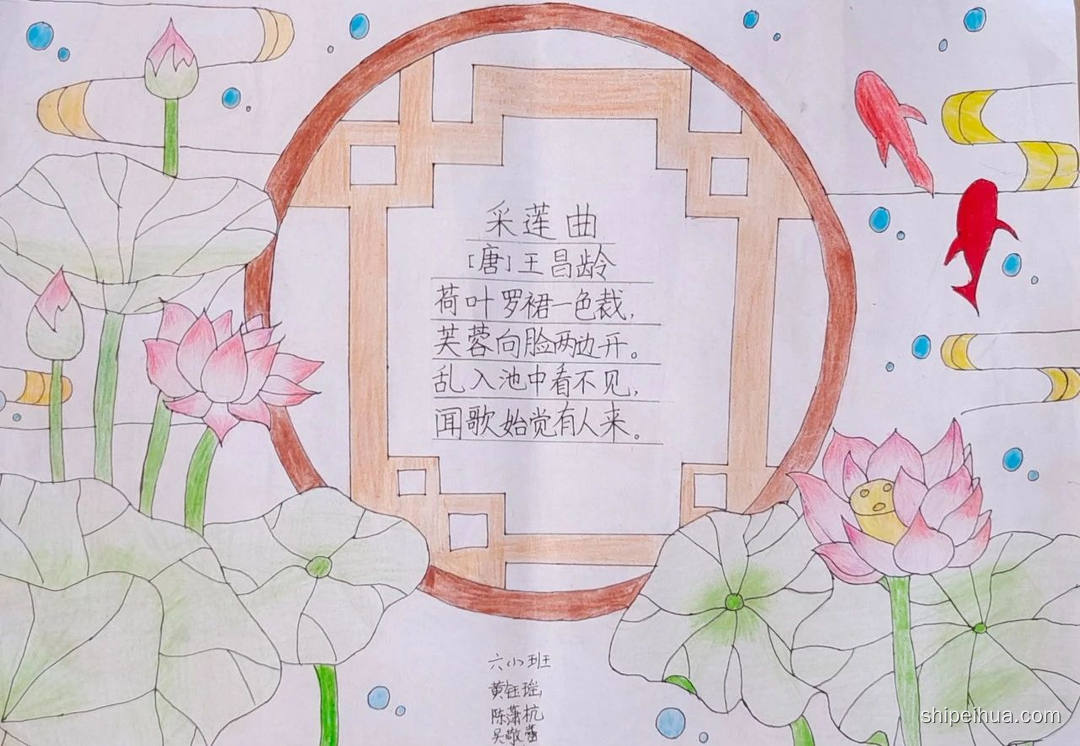 采莲曲
[唐]王昌龄
荷叶罗裙一色裁,
芙蓉向脸两边开。
乱入池中看不见,
闻歌始觉有人来。
六小班
黄钰瑶
陈潇杭
shipeihua.com